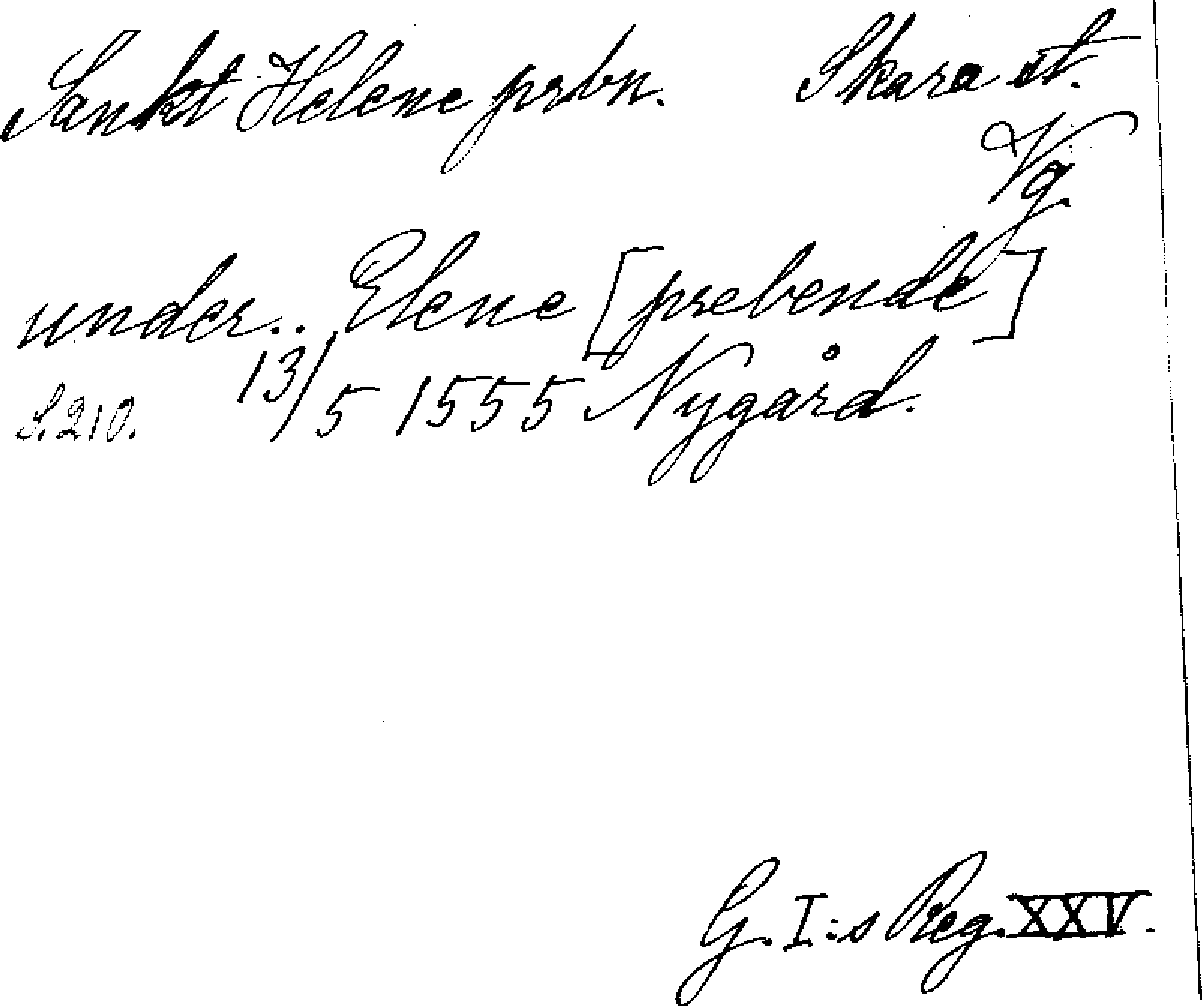 Sankt Helene prbn. Skara st.
Vg
under.. Elene [prebende]
S. 210. 13/5 1555 Nygård.
G. I:s Reg. XXV.